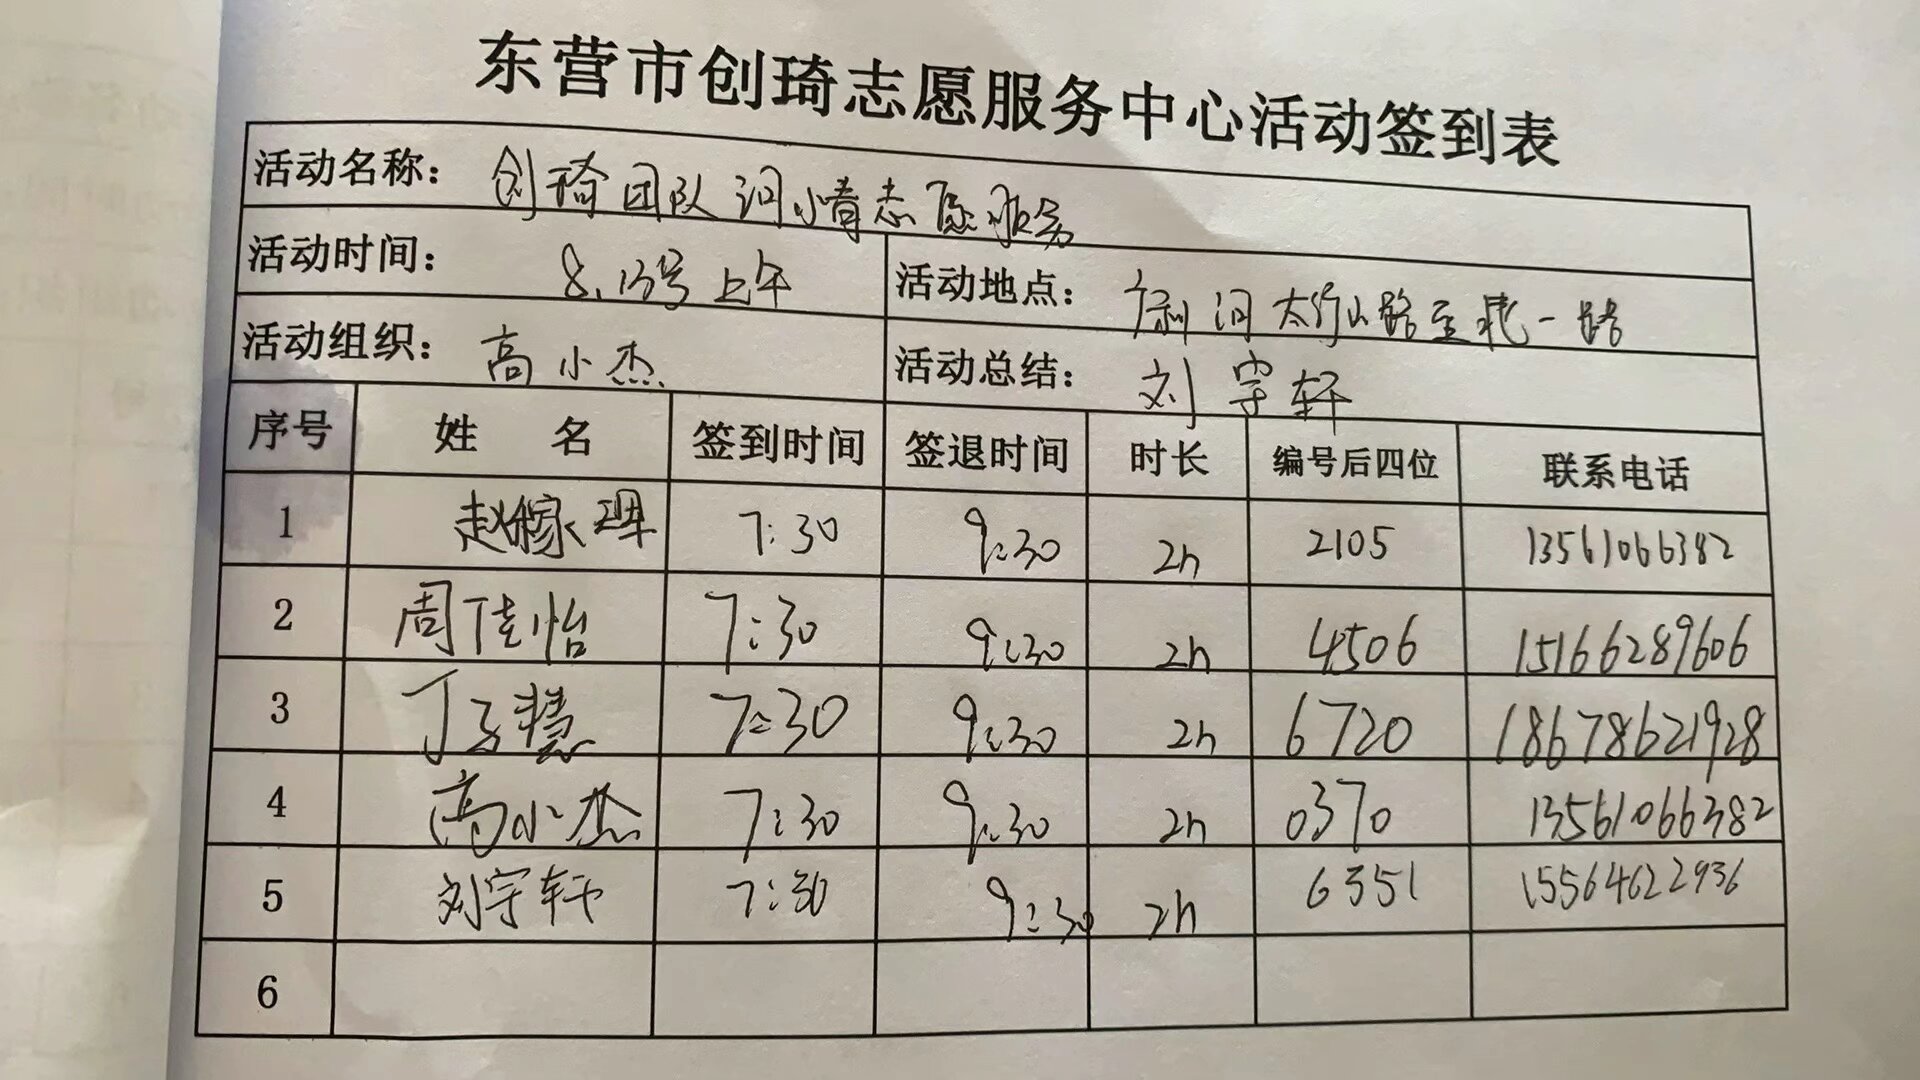 东营市创琦志愿服务中心活动签到表
活动名称： 创琦团队河小青志愿服务
活动时间： 8.13号上午 活动地点： 广利河太行山路至北一路
活动组织： 高小杰 活动总结： 刘宇轩
序号 姓 名 签到时间 签退时间 时长 编号后四位 联系电话
1 赵稼珲 7:30 9:30 2h 2105 13561066382
2 周佳怡 7:30 9:30 2h 4506 15166289606
3 丁子慧 7:30 9:30 2h 6720 18678621928
4 高小杰 7:30 9:30 2h 0370 13561066382
5 刘宇轩 7:30 9:30 2h 6351 15564622936
6